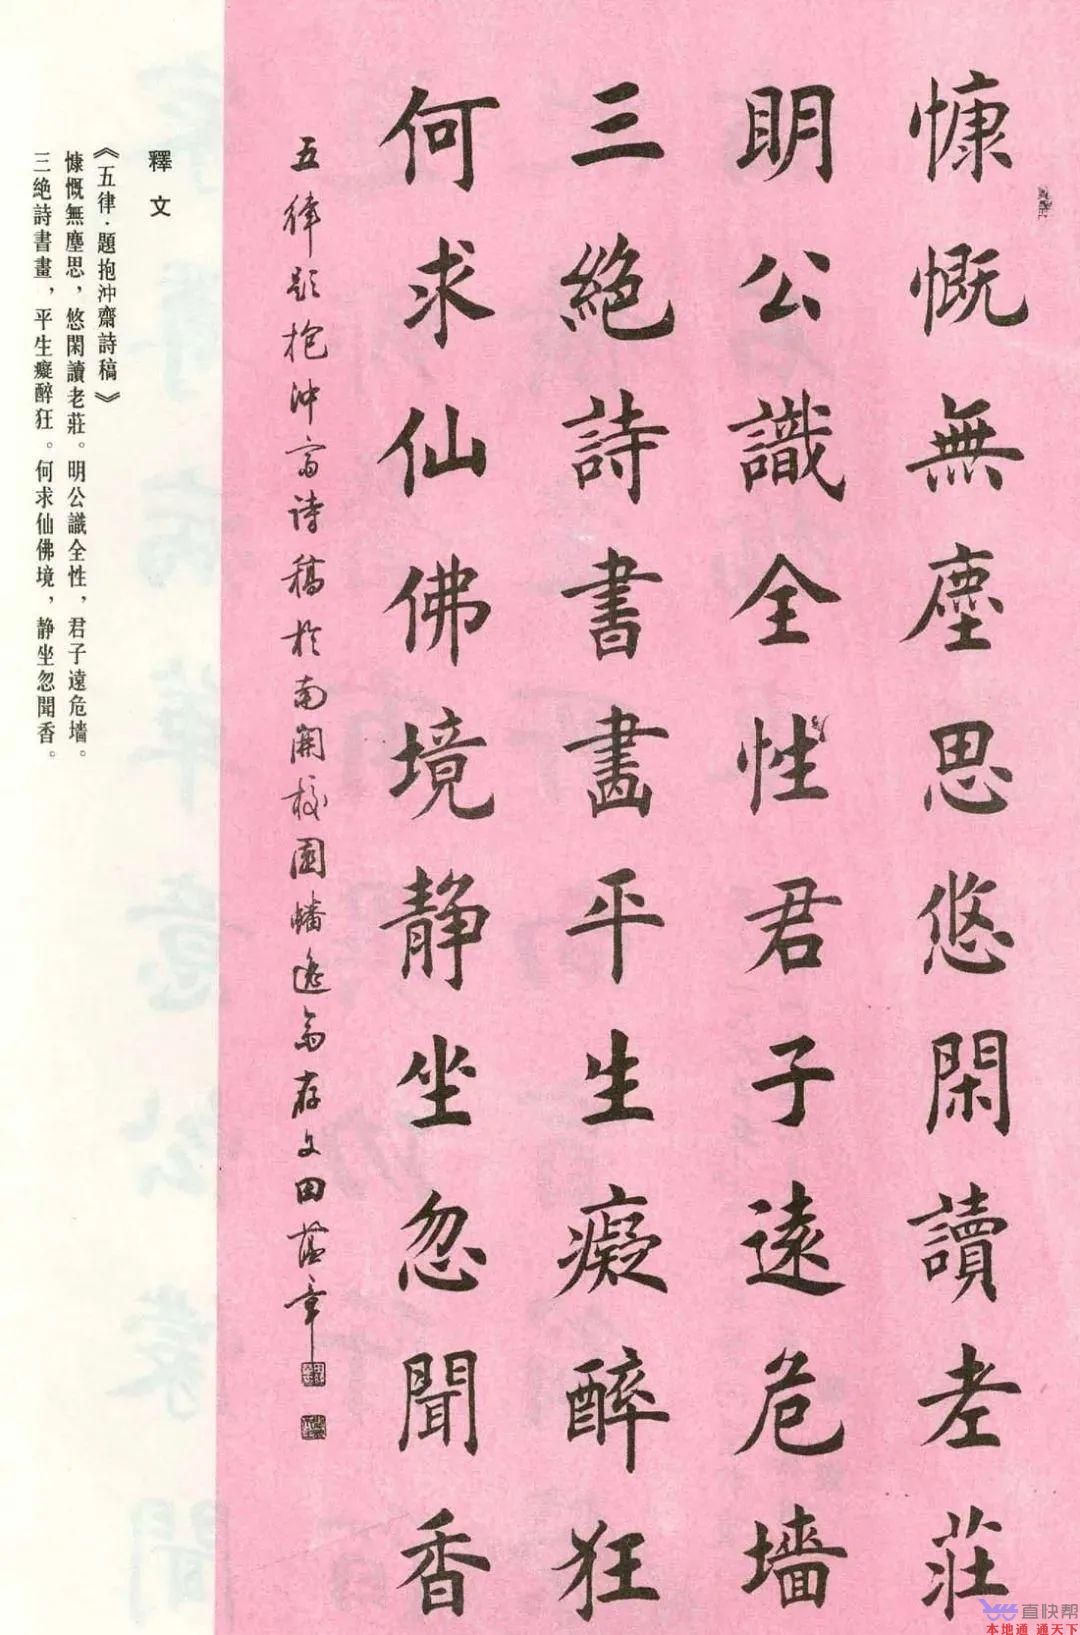 慷慨無塵思悠閑讀老莊
明公識全性君子遠危墻
三絶詩書畫平生癡醉狂
何求仙佛境静坐忽聞香
五律题抱沖斋诗稿於南開校園蟠逸斋存文田蕴章
釋文
《五律·題抱沖齋詩稿》
慷慨無塵思，悠閑讀老莊。明公識全性，君子遠危墻。
三絶詩書畫，平生癡醉狂。何求仙佛境，静坐忽聞香。
直快帮
本地通 通天下